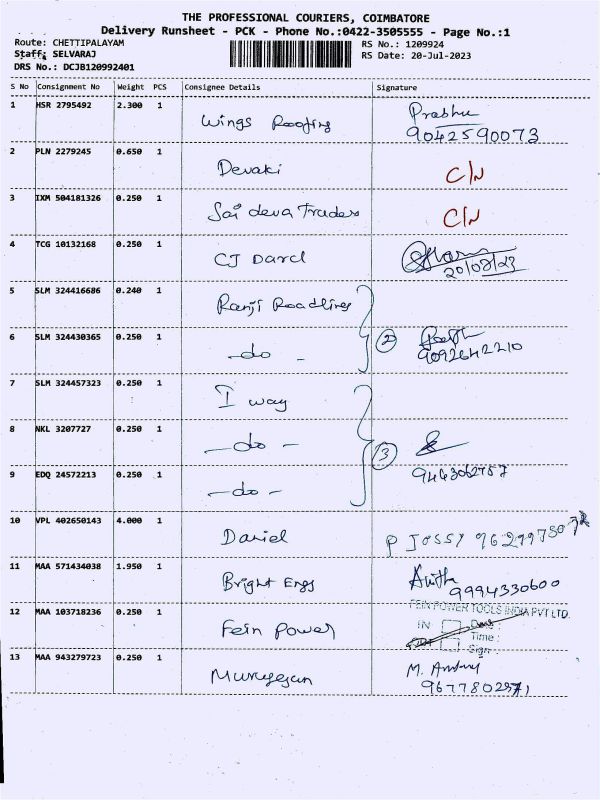 THE PROFESSIONAL COURIERS, COIMBATORE
Delivery Runsheet - PCK - Phone No.:0422-3505555 - Page No.:1
Route: CHETTIPALAYAM
Staff: SELVARAJ
DRS No.: DCJB120992401
RS No.: 1209924
RS Date: 20-Jul-2023
S No Consignment No Weight PCS Consignee Details Signature
1 HSR 2795492 2.300 1 Wings Roofing Prabhu
9042590073
2 PLN 2279245 0.650 1 Devaki C/N
3 IXM 504181326 0.250 1 Sai deva Traders C/N
4 TCG 10132168 0.250 1 CJ Darcl
20/08/23
5 SLM 324416686 0.240 1 Ranji Roadlines
6 SLM 324430365 0.250 1 -do- 2
9092642210
7 SLM 324457323 0.250 1 I way
8 NKL 3207727 0.250 1 -do-
3
9 EDQ 24572213 0.250 1 -do- 9443062757
10 VPL 402650143 4.000 1 Daniel P JOSSY
11 MAA 571434038 1.950 1 Bright Engs Anitha
9994330600
12 MAA 103718236 0.250 1 Fein Power FEIN POWER TOOLS INDIA PVT LTD.
IN Date :
Time :
Sign :
13 MAA 943279723 0.250 1 Murugesan M.